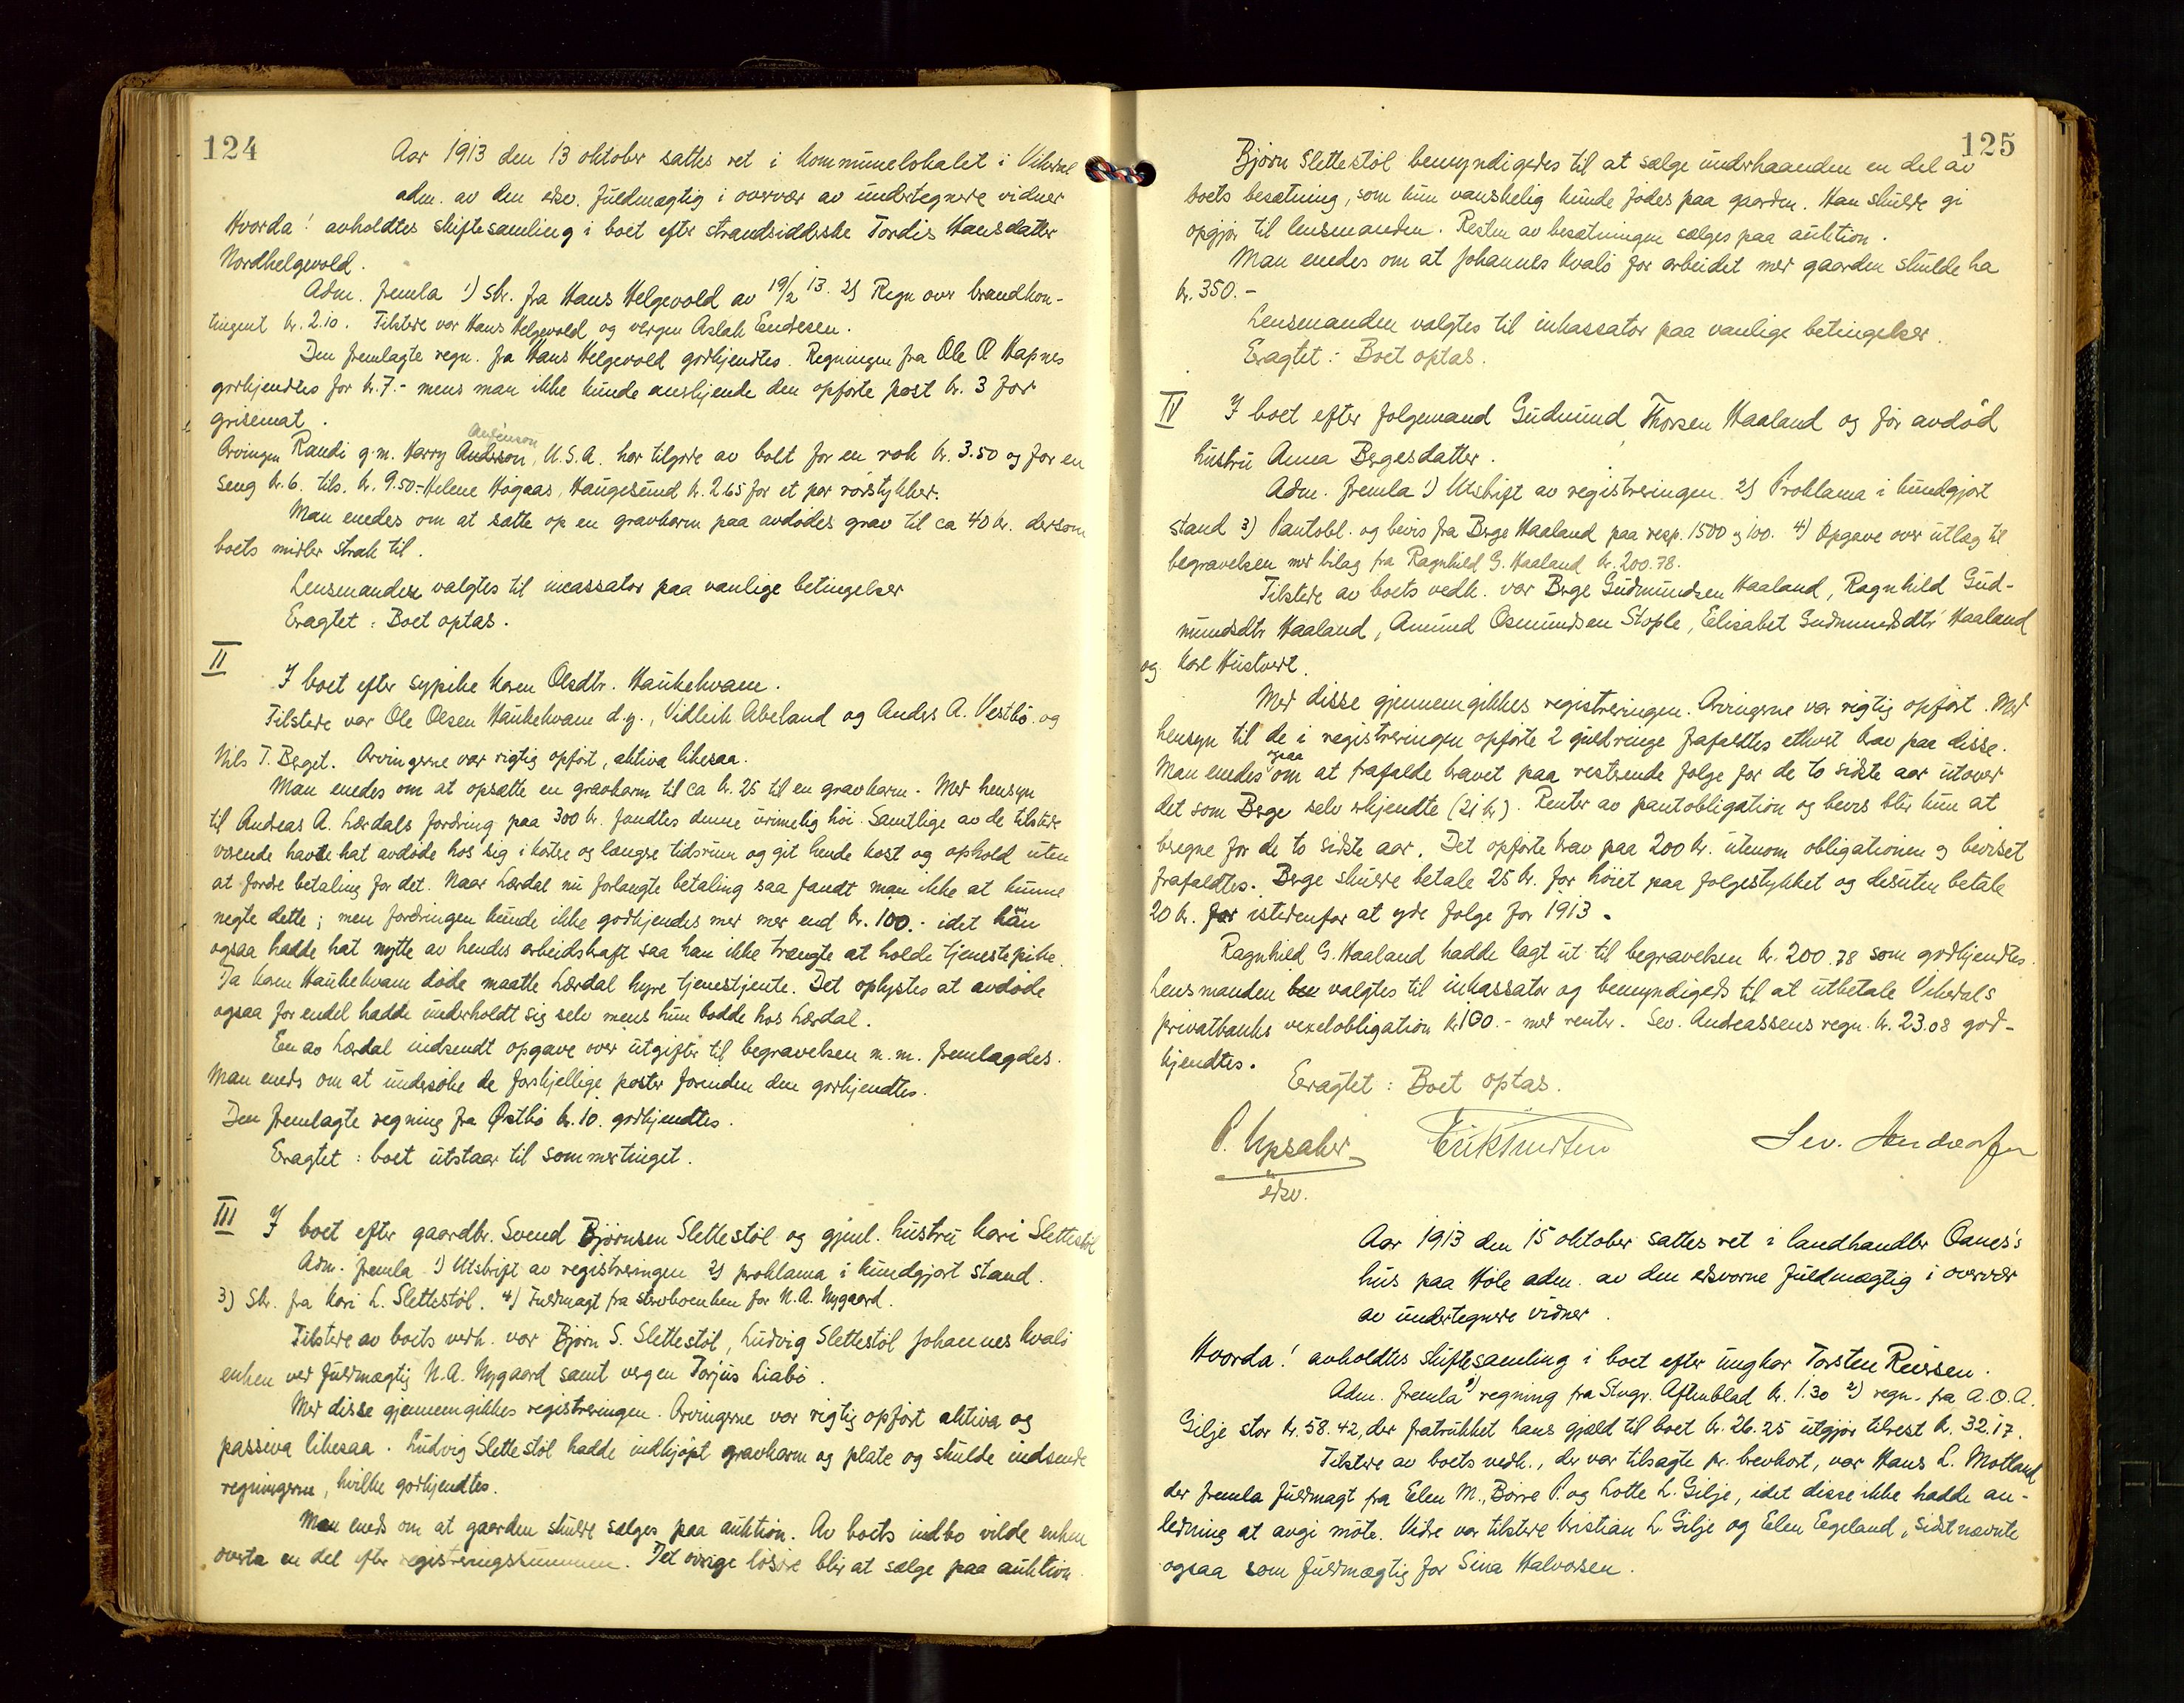 124
Aar 1913 den 13 oktober sattes ret i kommunelokalet i Vikedal
adm. av den edsv. fuldmægtig i overvær av undertegnede vidner
Hvorda! avholdtes skiftesamling i boet efter strandsidderske Tordis Hansdatter
Nordhelgevold.
Adm. fremla 1) Skr. fra Hans Helgevold av 19/2 13. 2) Regn over brandkon-
tingent kr. 2.10. Tilstede var Hans Helgevold og vergen Aslak Endresen.
Den fremlagte regn. fra Hans Helgevold godkjendtes. Regningen fra Ole O Hapnes
godkjendtes for kr. 7.- mens man ikke kunde anerkjende den opførte post kr. 3 for
grisemat.
Arvingen Randi g.m. Harry Anderson, U.S.A. har tilgode av bolt for en rok kr. 3.50 og for en
seng kr. 6. tils. kr. 9.50.- Helene Høgaas, Haugesund kr. 2.65 for et par rørstykker.
Man enedes om at sætte op en gravkarm paa avdødes grav til ca 40 kr. dersom
boets midler strak til.
Lensmanden valgtes til incassator paa vanlige betingelser
Eragtet: Boet optas.
II
I boet efter sypike Karen Olsdtr. Haukekvam.
Tilstede var Ole Olsen Haukekvam d.y., Vidleik Abeland og Anders A. Vestbø og
Nils T. Berget. Arvingerne var rigtig opført, aktiva likesaa.
Man enedes om at opsætte en gravkarm til ca kr. 25 til en gravkarm. Med hensyn
til Andreas A. Lærdals fordring paa 300 kr. fandtes denne urimelig høi. Samtlige av de tilstede
værende havde hat avdøde hos sig i kortere og længre tidsrum og git hende kost og ophold uten
at fordre betaling for det. Naar Lærdal nu forlangte betaling saa fandt man ikke at kunne
negte dette; men fordringen kunde ikke godkjendes med mer end kr. 100.- idet han
ogsaa hadde hat nytte av hendes arbeidskraft saa han ikke trængte at holde tjenestepike.
Da Karen Haukekvam døde maatte Lærdal hyre tjenestjente. Det oplystes at avdøde
ogsaa for endel hadde underholdt sig selv mens hun bodde hos Lærdal.
En av Lærdal indsendt opgave over utgifter til begravelsen m.m. fremlagdes.
Man eneds om at undersøke de forskjellige poster forinden den godkjendtes.
Den fremlagte regning fra Østbø kr. 10. godkjendtes.
Eragtet: boet utstaar til sommertinget.
III
I boet efter gaardbr. Svend Bjørnsen Slettestøl og gjenl. hustru Kari Slettestøl
Adm. fremla 1) Utskrift av registreringen 2) proklama i kundgjort stand.
3) Skr. fra Kari L. Slettestøl. 4) Fuldmagt fra for N.A. Nygaard.
Tilstede av boets vedk. var Bjørn S. Slettestøl, Ludvig Slettestøl Johannes Kvalø
enken ved fuldmægtig N.A. Nygaard samt vergen Torjus Liabø.
Med disse gjennemgikkes registreringen. Arvingerne var rigtig opført aktiva og
passiva likesaa. Ludvig Slettestøl hadde indkjøpt gravkarm og plate og skulde indsende
regningerne, hvilke godkjendtes.
Man eneds om at gaarden skulde sælges paa auktion. Av boets indbo vilde enken
overta en del efter registreringssummen. Det øvrige løsøre blir at sælge paa auktion.
125
Bjørn Slettestøl bemyndigedes til at sælge underhaanden en del av
boets besætning, som kun vanskelig kunde fødes paa gaarden. Han skulde gi
opgjør til lensmanden. Resten av besætningen sælges paa auktion.
Man enedes om at Johannes Kvalø for arbeidet med gaarden skulde ha
kr. 350.-
Lensmanden valgtes til inkassator paa vanlige betingelser.
Eragtet: Boet optas.
IV I boet efter følgemand Gudmund Thorsen Haaland og før avdød
hustru Anna Bergesdatter.
Adm. fremla 1) Utskrift av registreringen. 2) Proklama i kundgjort
stand 3) Pantobl. og bevis fra Berge Haaland paa resp. 1500 og 100. 4) Opgave over utlæg til
begravelsen med bilag fra Ragnhild G. Haaland kr. 200.78.
Tilstede av boets vedk. var Berge Gudmundsen Haaland, Ragnhild Gud-
mundsdtr Haaland, Amund Osmundsen Stople, Elisabet Gudmundsdtr Haaland
og Kari Hustvedt.
Med disse gjennemgikkes registreringen. Arvingerne var rigtig opført. Med
hensyn til de i registreringen opførte 2 guldringe frafaldtes ethvert krav paa disse.
Man enedes ogsaa om at frafalde kravet paa resterende følge for de to sidste aar utover
det som Berge selv erkjendte (21 kr). Renter av pantobligation og bevis blir kun at
beregne for de to sidste aar. Det opførte krav paa 200 kr. utenom obligationen og beviset
frafaldtes. Berge skulde betale 25 kr. for høiet paa følgestykket og desuten betale
20 kr. for istedenfor at yde følge for 1913.
Ragnhild G. Haaland hadde lagt ut til begravelsen kr. 200.78 som godkjendtes.
Lensmanden valgtes til inkassator og bemyndiges til at utbetale Vikedals
privatbanks vexelobligation kr 100.- med renter. Sev. Andreassens regn. kr. 23.08 god-
kjendtes.
Eragtet: Boet optas.
P. Upsaker
edsv.
Sev. Andreassen
Aar 1913 den 15 oktober sattes ret i landhandler Oanes's
hus paa Høle adm. av den edsvorne fuldmægtig i overvær
av undertegnede vidner.
Hvorda! avholdtes skiftesamling i boet efter ungkar Torsten Reiersen.
Adm. fremla 1) regning fra Stvgr. Aftenblad kr. 1.30 2) regn. fra A.O.A.
Gilje stor kr. 58.42, der fratrukket hans gjæld til boet kr. 26.25 utgjør tilrest kr. 32.17.
Tilstede av boets vedk., der var tilsagte pr. brevkort, var Hans L. Motland
der fremla fuldmagt fra Elen M., Børre P. og Lotte L. Gilje, idet disse ikke hadde an-
ledning at avgi møte. Videre var tilstede Kristian L. Gilje og Elen Eegeland, sidstnævnte
ogsaa som fuldmægtig for Sina Halvorsen.